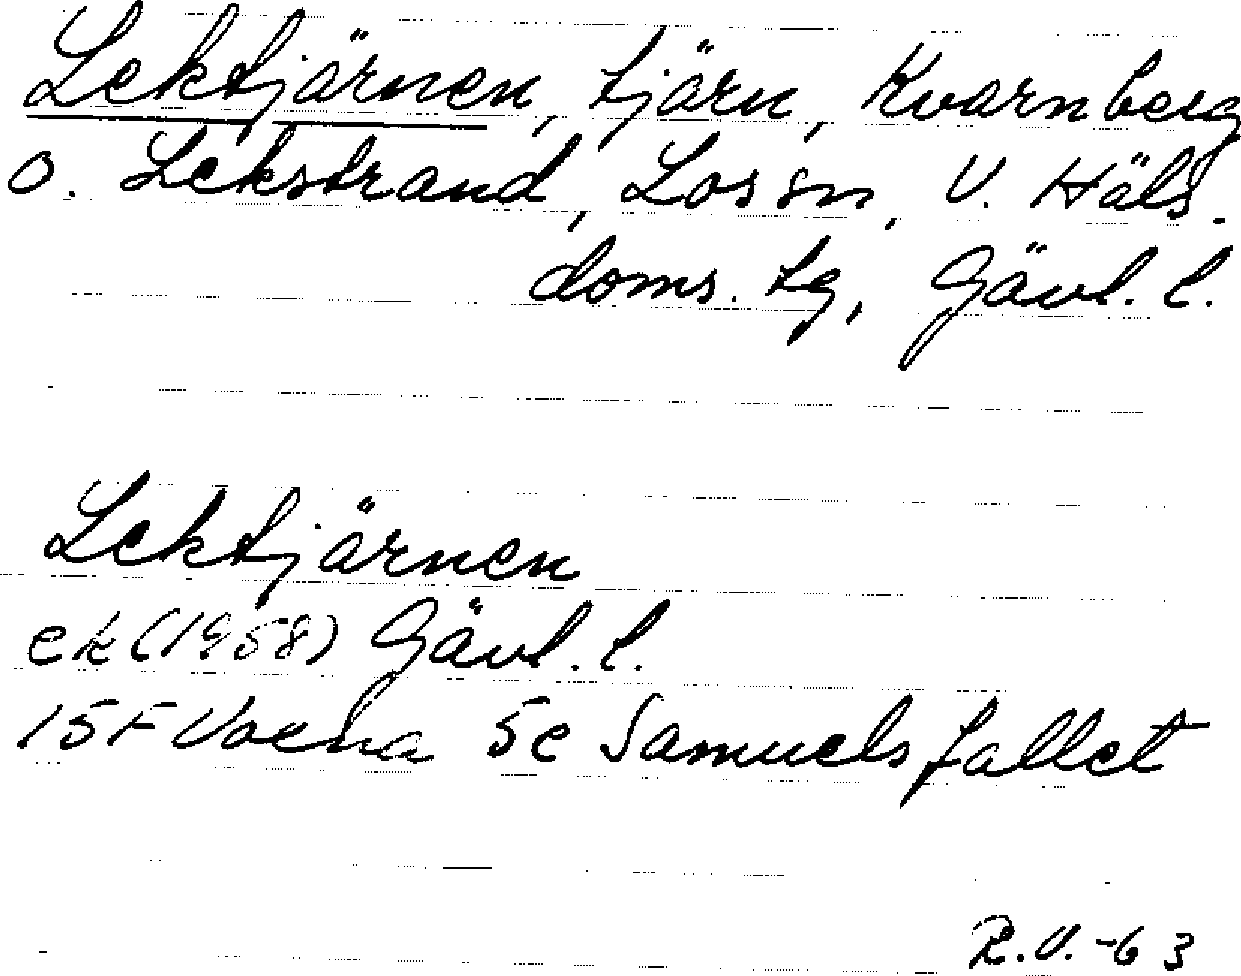 Lektjärnen, tjärn, Kvarnberg
o. Lekstrand, Los sn, V. Häls.
doms. tg, Gävl. l.
Lektjärnen
ek (1958) Gävl. l.
15F Voxna 5e Samuelsfallet
R.V. -63